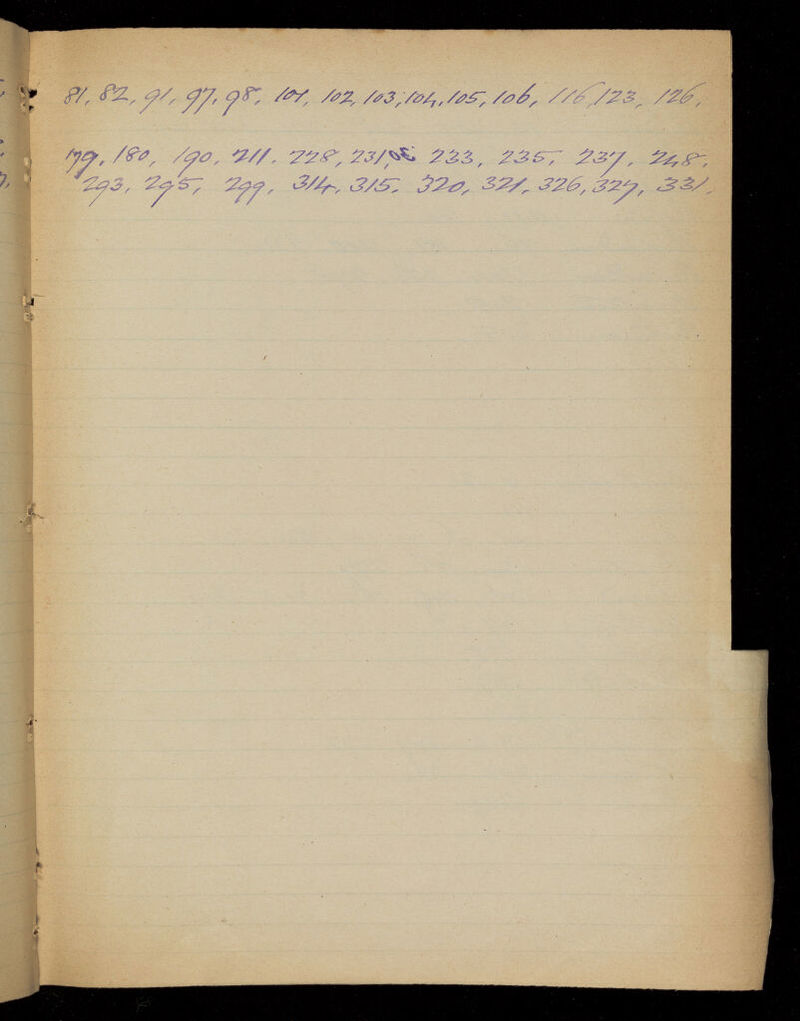 81, 82, 91, 97, 98, 101, 102, 103, 104, 105, 106, 116, 123, 126,
179, 180, 190, 211, 228, 231, 233, 235, 237, 248,
293, 295, 299, 314, 315, 320, 321, 326, 327, 331,